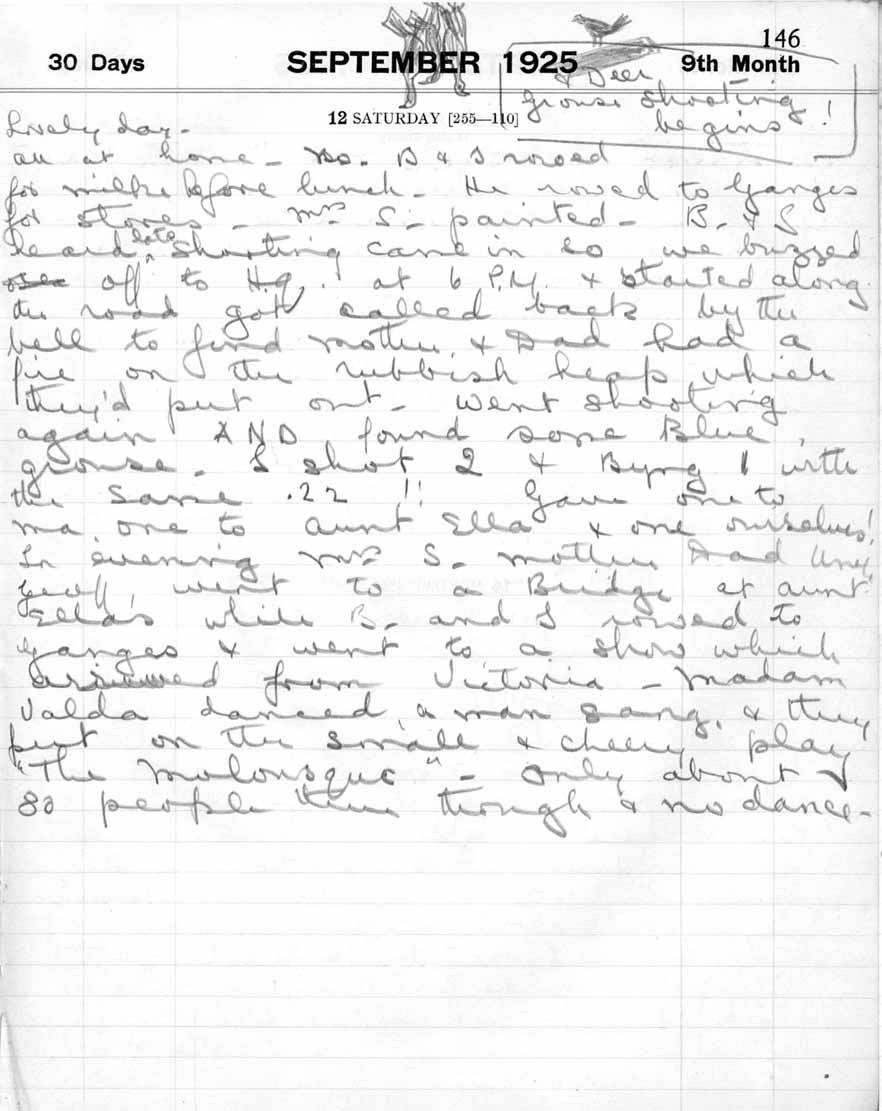 146
30 Days SEPTEMBER 1925 9th Month
& Deer
grouse shooting
begins!
12 SATURDAY [255—110]
Lovely day -
all at home - B & I rowed
for milk before lunch - He rowed to Ganges
for stores - Mrs S. painted - B. & I
heard late shooting came in so we buzzed
off to H.Q. at 6 P.M. & started along
the road got called back by the
bell to find mother & Dad had a
fire on the rubbish heap which
they'd put out - went shooting
again AND found some Blue
grouse. I shot 2 & Byng 1 with
the same .22 !! Gave one to
ma, one to aunt Ella & one ourselves!
In evening Mrs S. mother Dad
Geoff, went to a Bridge at aunt
Ella's while B. and I rowed to
Ganges & went to a show which
arrived from Victoria - Madam
Valda danced, a man sang, & they
put on the small & cheery play
"The " - only about
80 people there though & no dance -